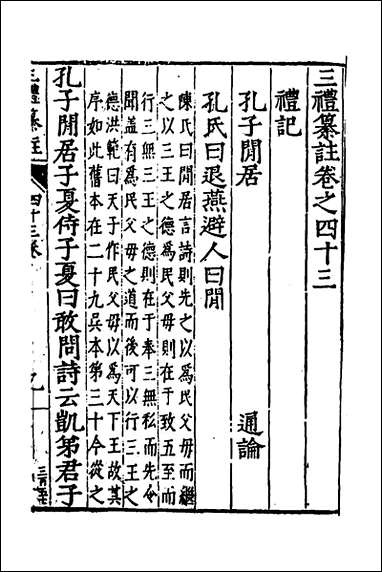 三禮纂註卷之四十三
禮記
孔子閒居 通論
孔氏曰退燕避人曰閒
陳氏曰閒居言詩則先之以為民父母而繼
之以三王之德為民父母則在于致五至而
行三無三王之德則在于奉三無私而先令
聞蓋有為民父母之道而後可以行三王之
德洪範曰天子作民父母以為天下王故其
序如此舊本在二十九吳本第三十今從之
孔子閒居子夏侍子夏曰敢問詩云凱弟君子
三禮纂註 四十三卷